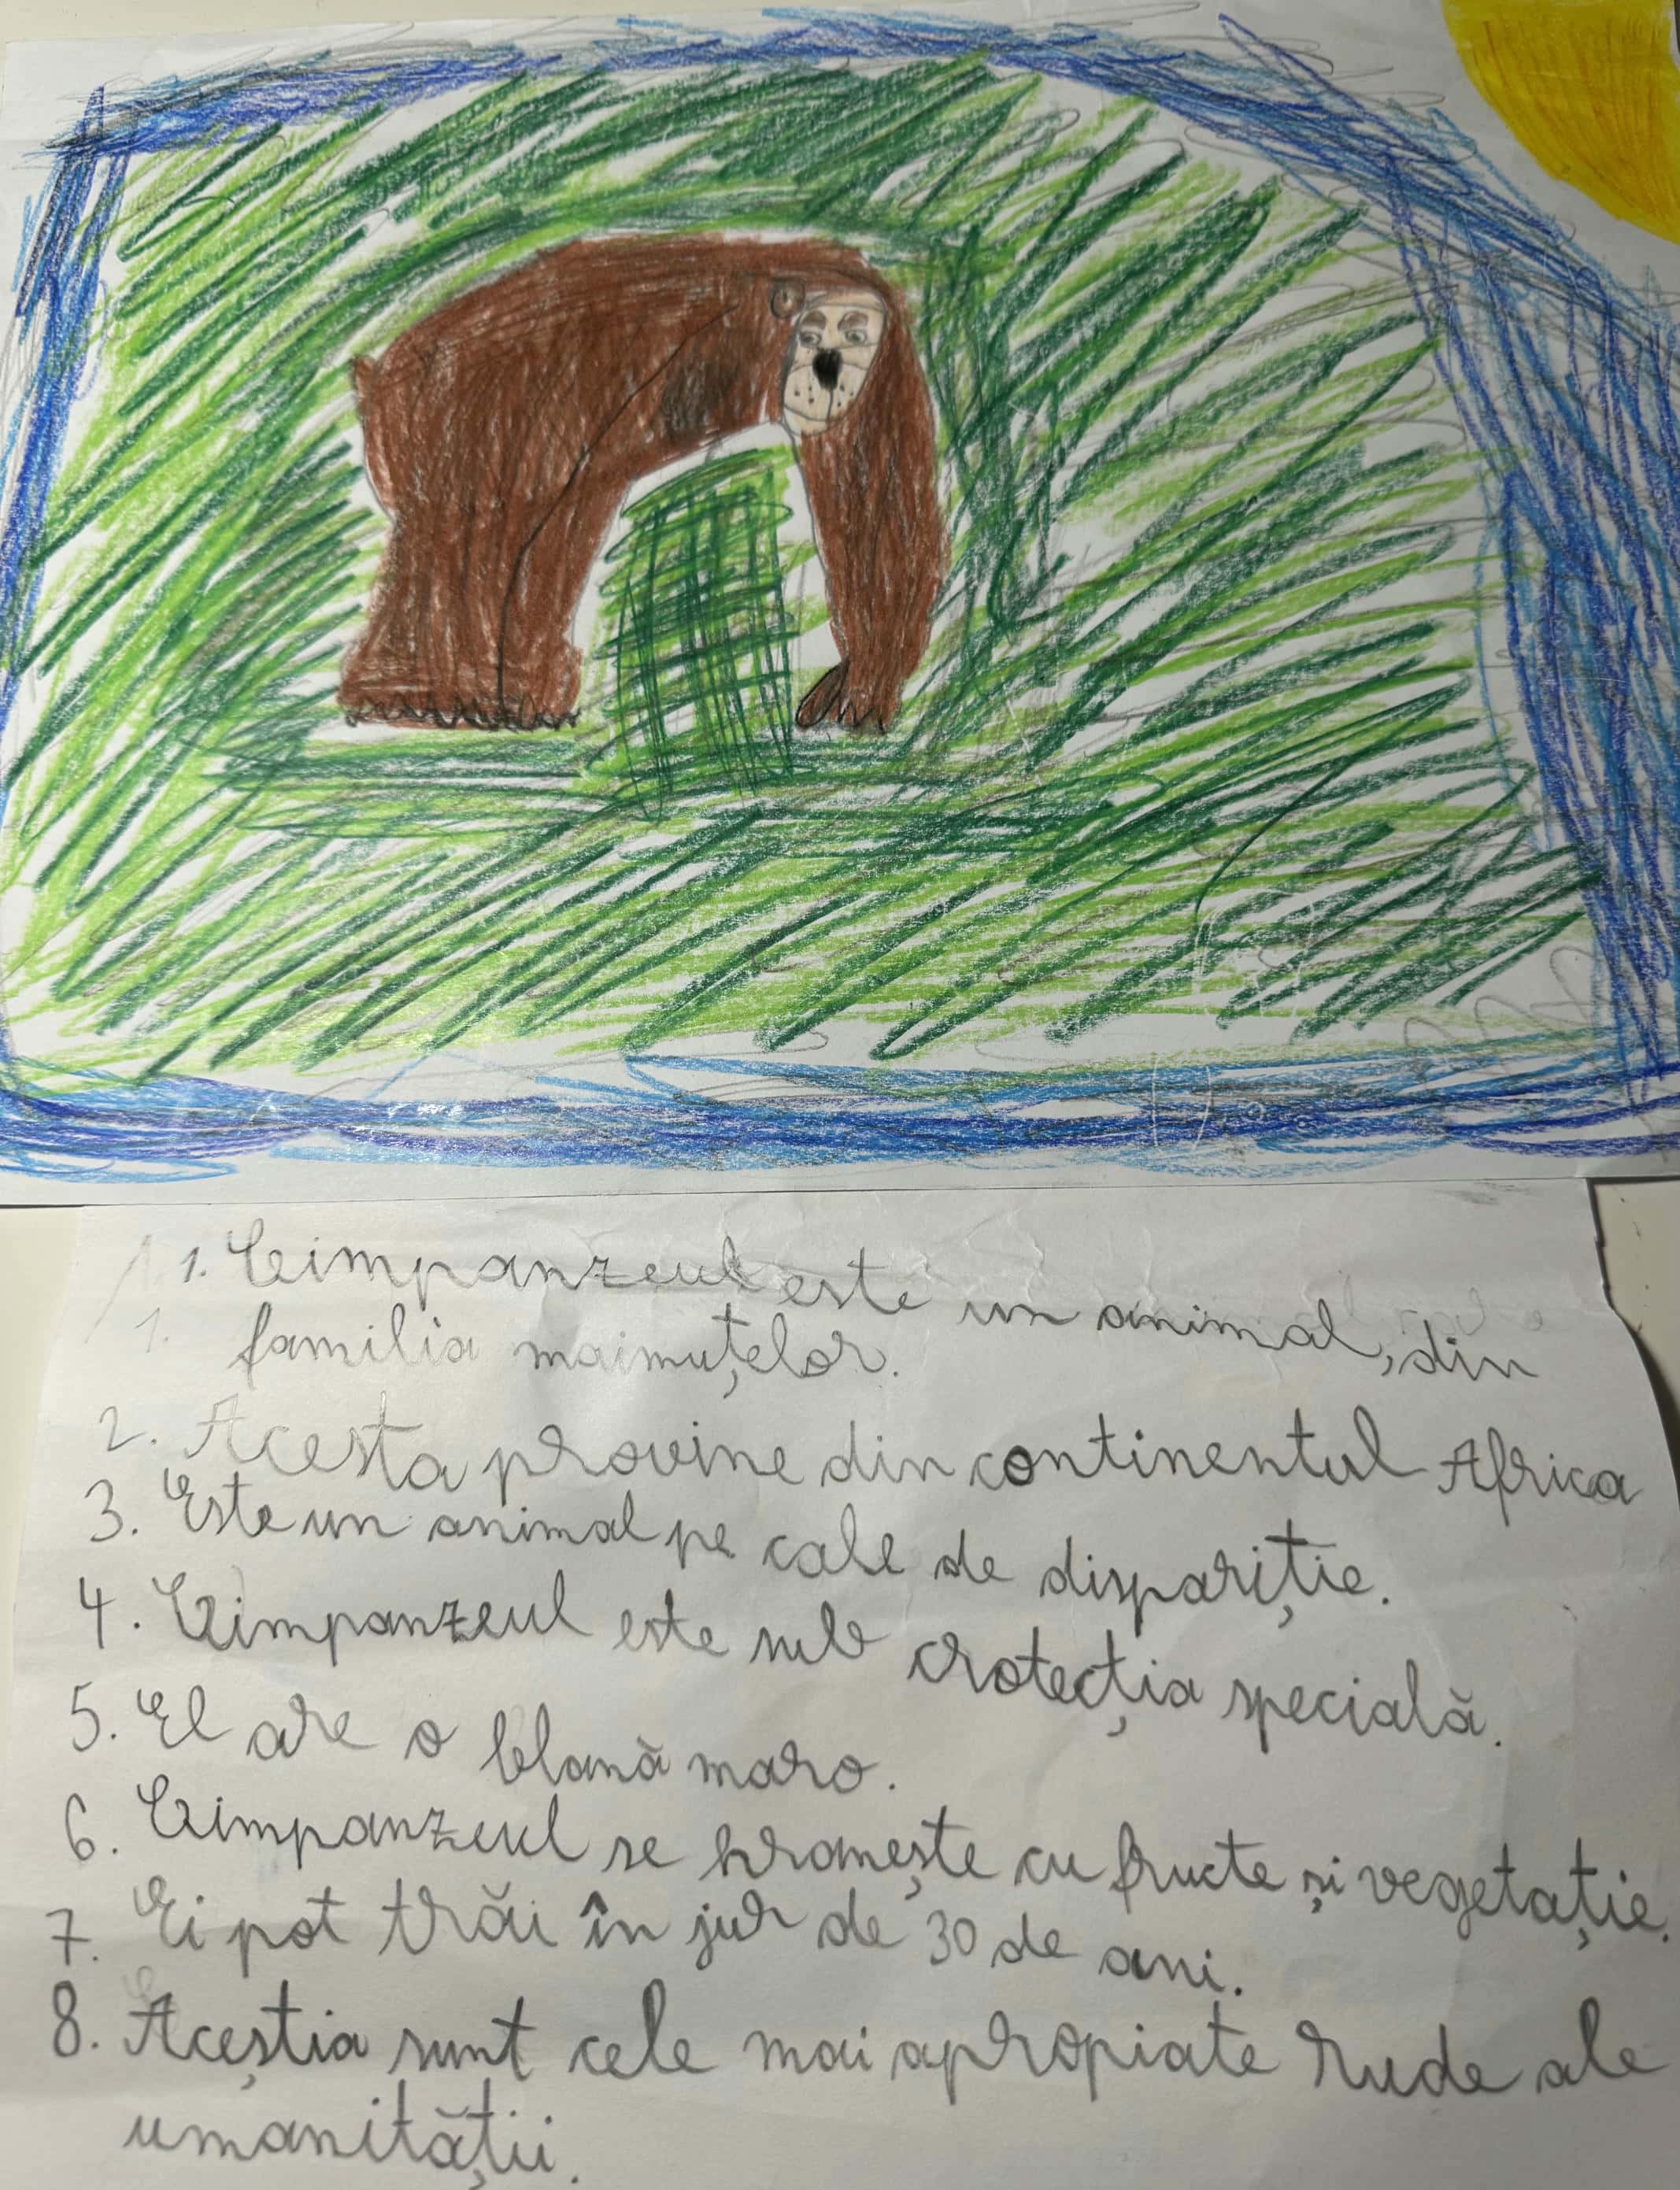 1. Cimpanzeul este un animal, din
familia maimuțelor.
2. Acesta provine din continentul Africa
3. Este un animal pe cale de dispariție.
4. Cimpanzeul este sub crotecția specială.
5. El are o blană maro.
6. Cimpanzeul se hranește cu fructe și vegetație.
7. Ei pot trăi în jur de 30 de ani.
8. Aceștia sunt cele mai apropiate rude ale
umanității.